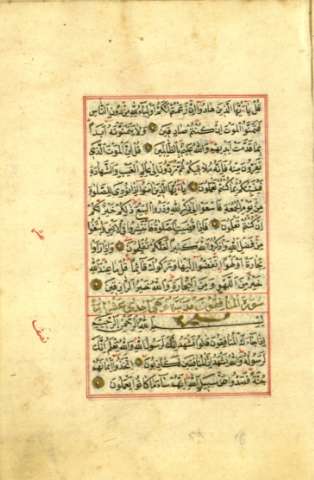 قُلْ يَا أَيُّهَا الَّذِينَ هَادُوا إِنْ زَعَمْتُمْ أَنَّكُمْ أَوْلِيَاءُ لِلَّهِ مِنْ دُونِ النَّاسِ
فَتَمَنَّوُا الْمَوْتَ إِنْ كُنْتُمْ صَادِقِينَ وَلَا يَتَمَنَّوْنَهُ أَبَدًا
بِمَا قَدَّمَتْ أَيْدِيهِمْ وَاللَّهُ عَلِيمٌ بِالظَّالِمِينَ قُلْ إِنَّ الْمَوْتَ الَّذِي
تَفِرُّونَ مِنْهُ فَإِنَّهُ مُلَاقِيكُمْ ثُمَّ تُرَدُّونَ إِلَى عَالِمِ الْغَيْبِ وَالشَّهَادَةِ
فَيُنَبِّئُكُمْ بِمَا كُنْتُمْ تَعْمَلُونَ يَا أَيُّهَا الَّذِينَ آمَنُوا إِذَا نُودِيَ لِلصَّلٰوةِ
مِنْ يَوْمِ الْجُمُعَةِ فَاسْعَوْا إِلَى ذِكْرِ اللَّهِ وَذَرُوا الْبَيْعَ ذَلِكُمْ خَيْرٌ لَكُمْ
إِنْ كُنْتُمْ تَعْلَمُونَ فَإِذَا قُضِيَتِ الصَّلٰوةُ فَانْتَشِرُوا فِي الْأَرْضِ وَابْتَغُوا
مِنْ فَضْلِ اللَّهِ وَاذْكُرُوا اللَّهَ كَثِيرًا لَعَلَّكُمْ تُفْلِحُونَ وَإِذَا رَأَوْا
تِجَارَةً أَوْ لَهْوًا انْفَضُّوا إِلَيْهَا وَتَرَكُوكَ قَائِمًا قُلْ مَا عِنْدَ اللَّهِ
خَيْرٌ مِنَ اللَّهْوِ وَمِنَ التِّجَارَةِ وَاللَّهُ خَيْرُ الرَّازِقِينَ
سورة المنافقين مدنية وهي احدى عشر اية
بِسْمِ اللَّهِ الرَّحْمَنِ الرَّحِيمِ
إِذَا جَاءَكَ الْمُنَافِقُونَ قَالُوا نَشْهَدُ إِنَّكَ لَرَسُولُ اللَّهِ وَاللَّهُ يَعْلَمُ إِنَّكَ
لَرَسُولُهُ وَاللَّهُ يَشْهَدُ إِنَّ الْمُنَافِقِينَ لَكَاذِبُونَ اتَّخَذُوا أَيْمَانَهُمْ
جُنَّةً فَصَدُّوا عَنْ سَبِيلِ اللَّهِ إِنَّهُمْ سَاءَ مَا كَانُوا يَعْمَلُونَ